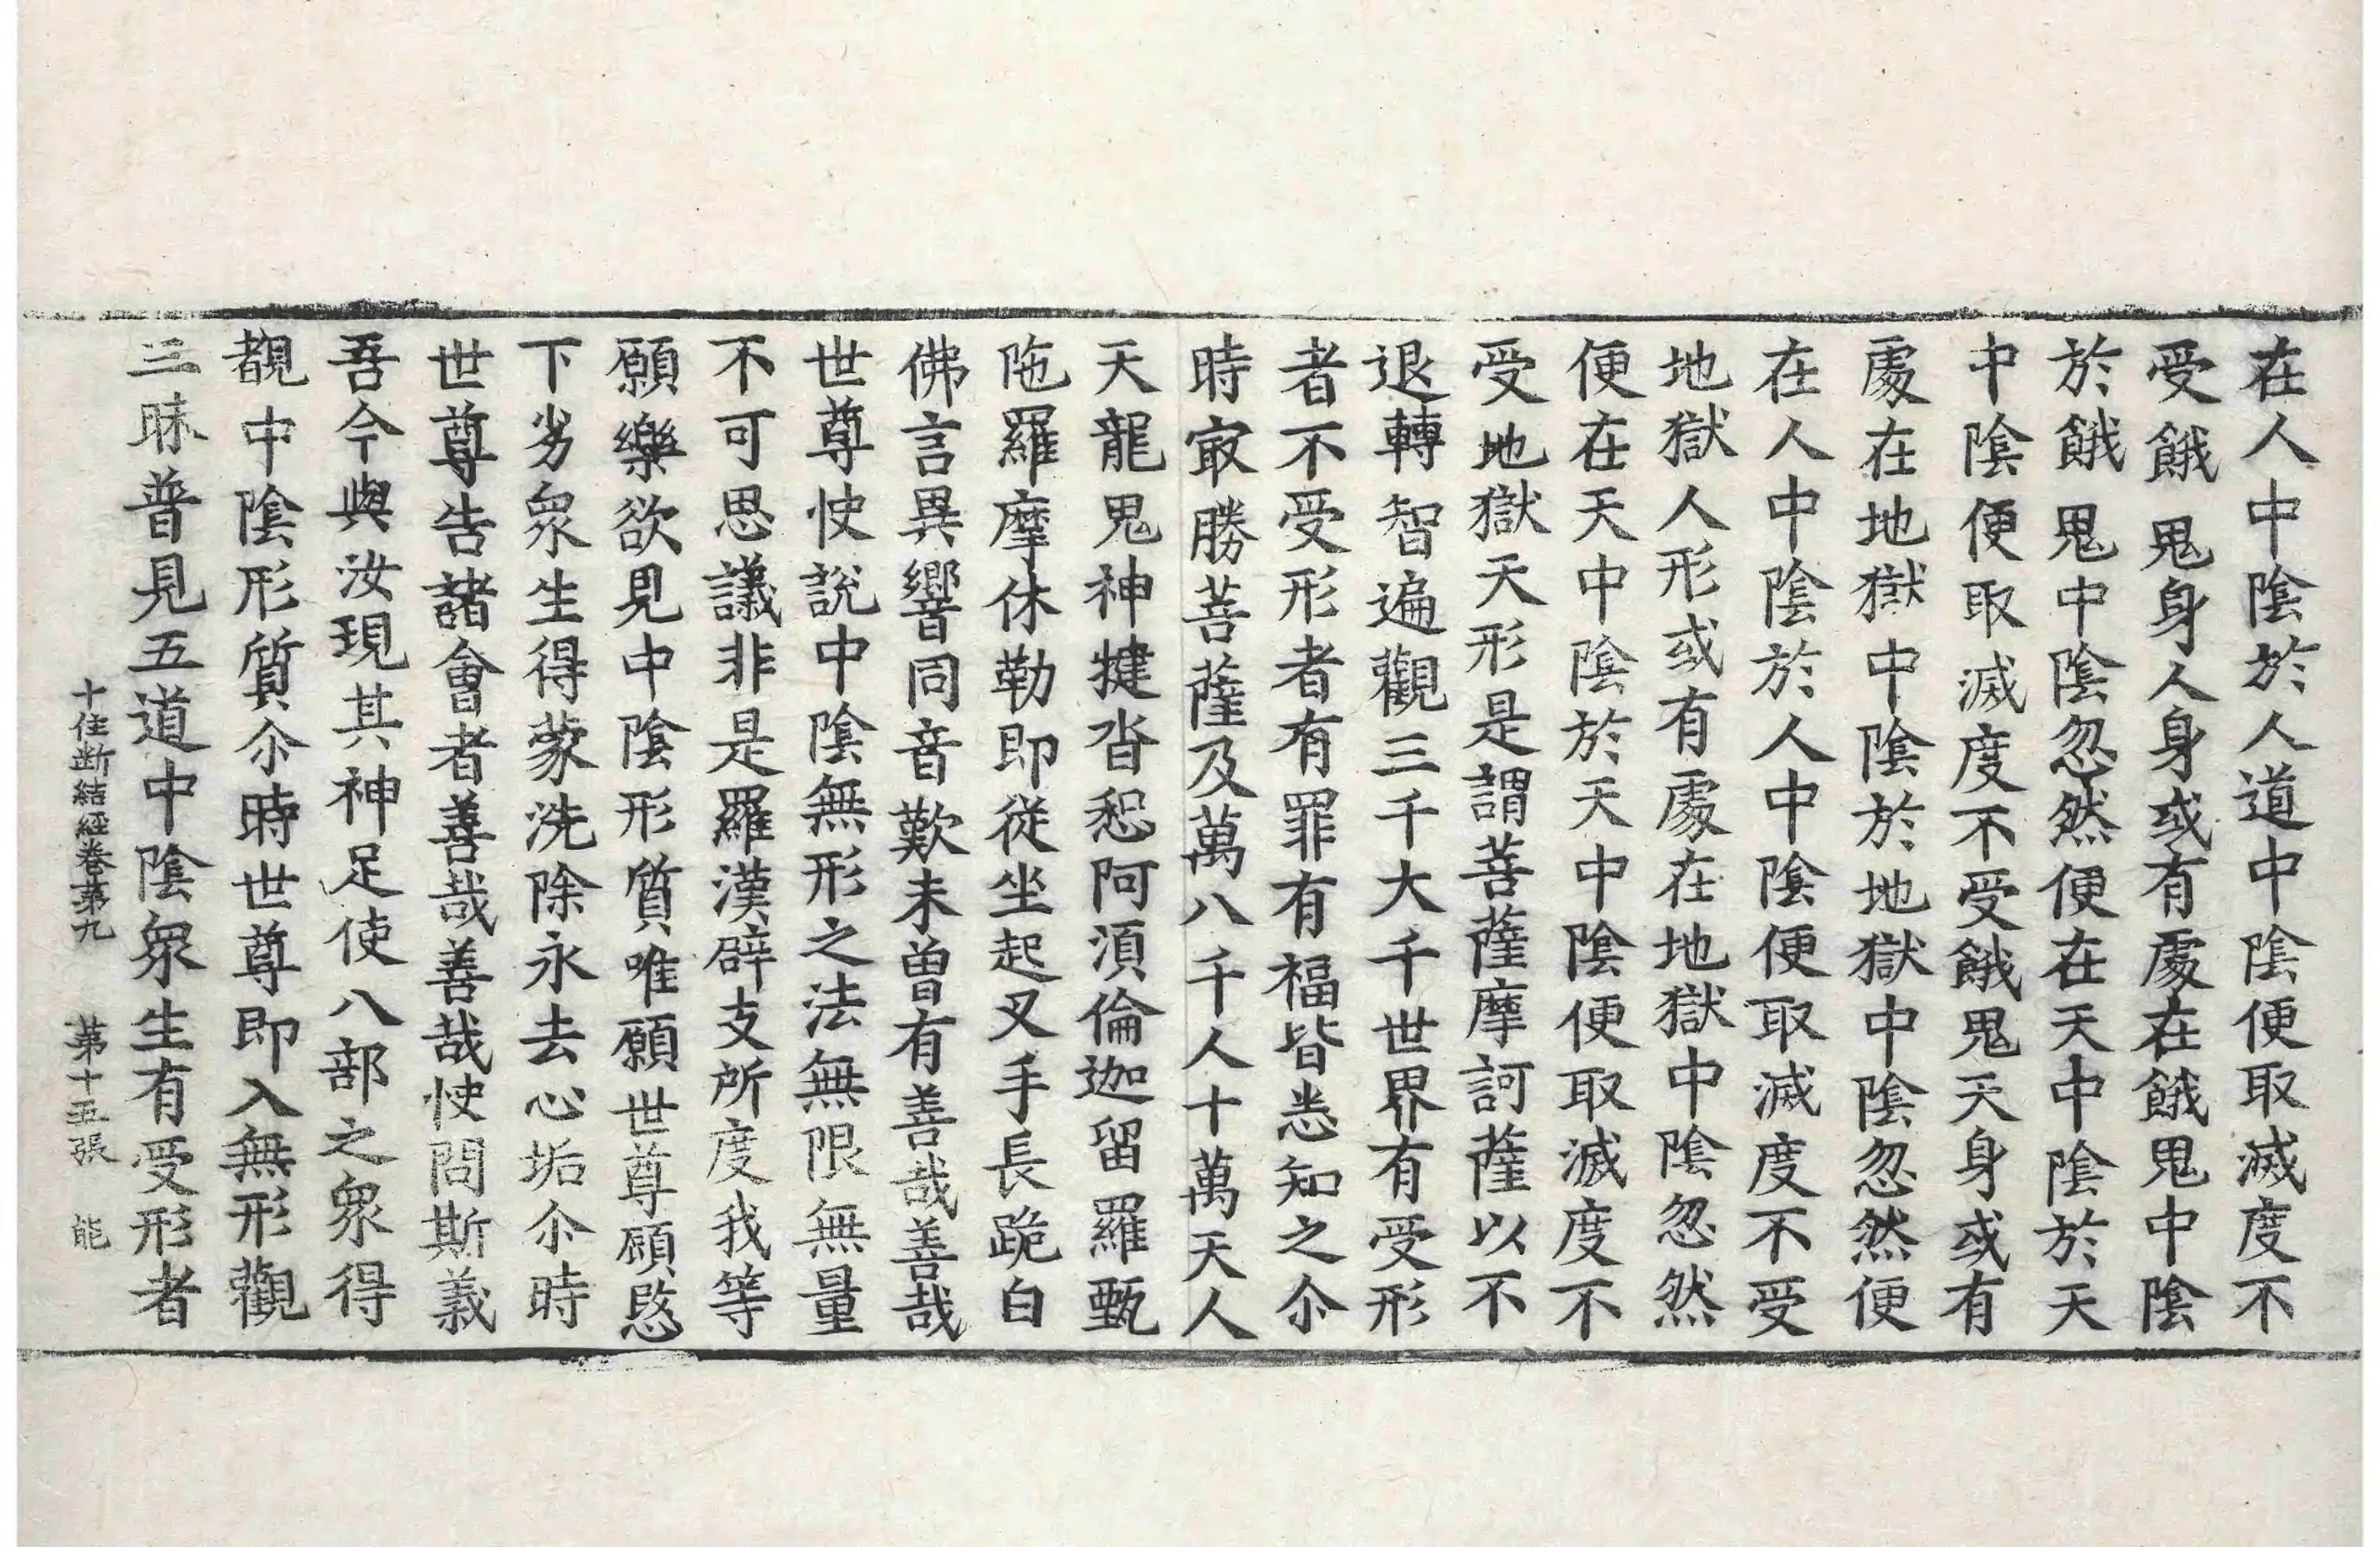 在人中陰於人道中陰便取滅度不
受餓鬼身人身或有處在餓鬼中陰
於餓鬼中陰忽然便在天中陰於天
中陰便取滅度不受餓鬼天身或有
處在地獄中陰於地獄中陰忽然便
在人中陰於人中陰便取滅度不受
地獄人形或有處在地獄中陰忽然
便在天中陰於天中陰便取滅度不
受地獄天形是謂菩薩摩訶薩以不
退轉智遍觀三千大千世界有受形
者不受形者有罪有福皆悉知之尒
時㝡勝菩薩及萬八千人十萬天人
天龍鬼神揵沓惒阿須倫迦留羅甄
陁羅摩休勒即從坐起叉手長跪白
佛言異響同音歎未曾有善哉善哉
世尊快說中陰無形之法無限無量
不可思議非是羅漢辟支所度我等
願樂欲見中陰形質唯願世尊頋愍
下劣衆生得蒙洗除永去心垢尒時
世尊告諸會者善哉善哉快問斯義
吾今與汝現其神足使八部之衆得
覩中陰形質尒時世尊即入無形觀
三昧普見五道中陰衆生有受形者
十住断結經卷第九 第十五張 能